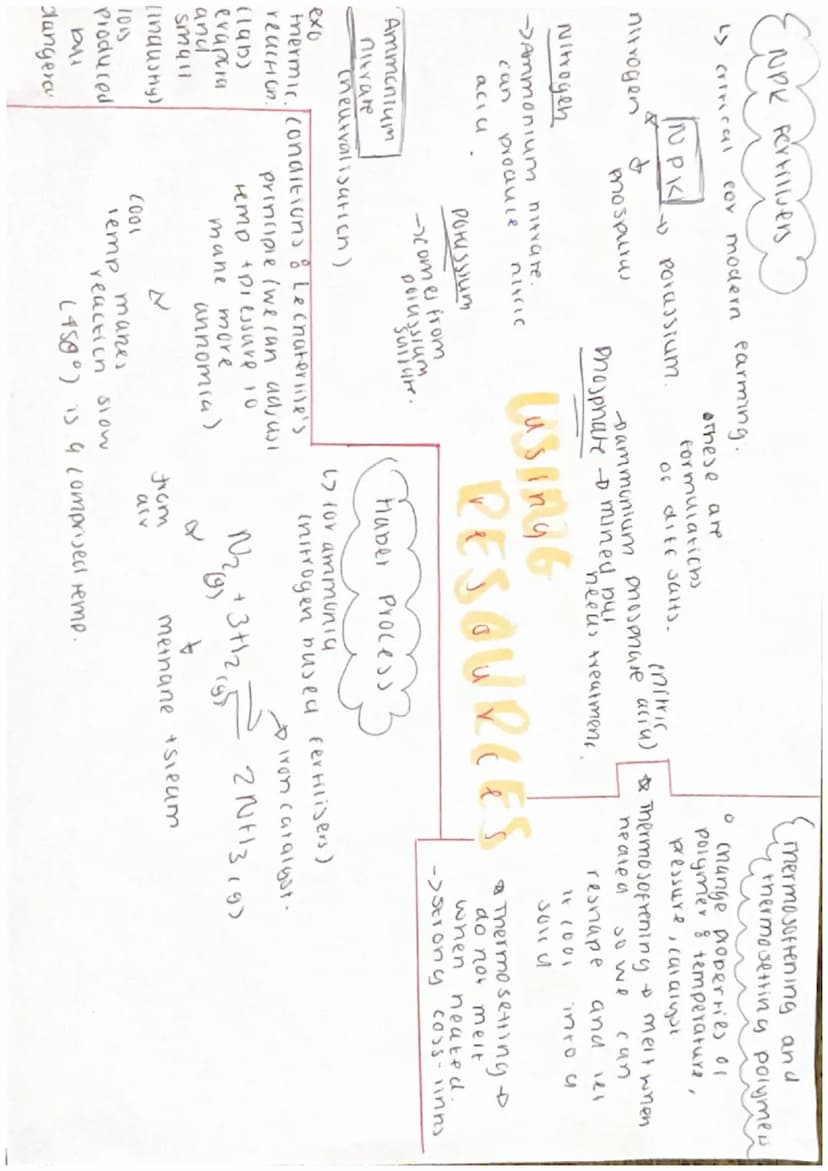 NPK Fertilisers
↳ critical for modern farming.
NPK → potassium.
nitrogen
phosporus
• these are
formulations
of diff salts.
Nitrogen
→ Ammonium nitrate.
can produce nitric
acid.
potassium
→ comes from
potassium
sulfate.
(nitric
→ ammonium phosphate acid)
phosphate → mined but
needs treatment.
USING
RESOURCES
Ammonium
nitrate
(neutralisation)
exo
thermic
reaction.
(lab)
and
small
(industry)
produced
but
conditions: Le chaterlie's
principle (we can adjust
temp + pressure to
make more
ammonia)
cool
temp makes
reaction slow
(450°) is a comprised temp.
Haber Process
↳ for ammonia
(nitrogen based fertilisers)
→ iron catalyst.
N₂(g) + 3H₂(g) ⇌ 2NH₃(g)
from
air
methane + steam
thermosoftening and
thermosetting polymers
• change properties of
polymer: temperature,
pressure, catalyst
thermosoftening → melt when
heated so we can
reshape and let
it cool into a
solid
thermosetting →
do not melt
when heated.
→ strong coss-links